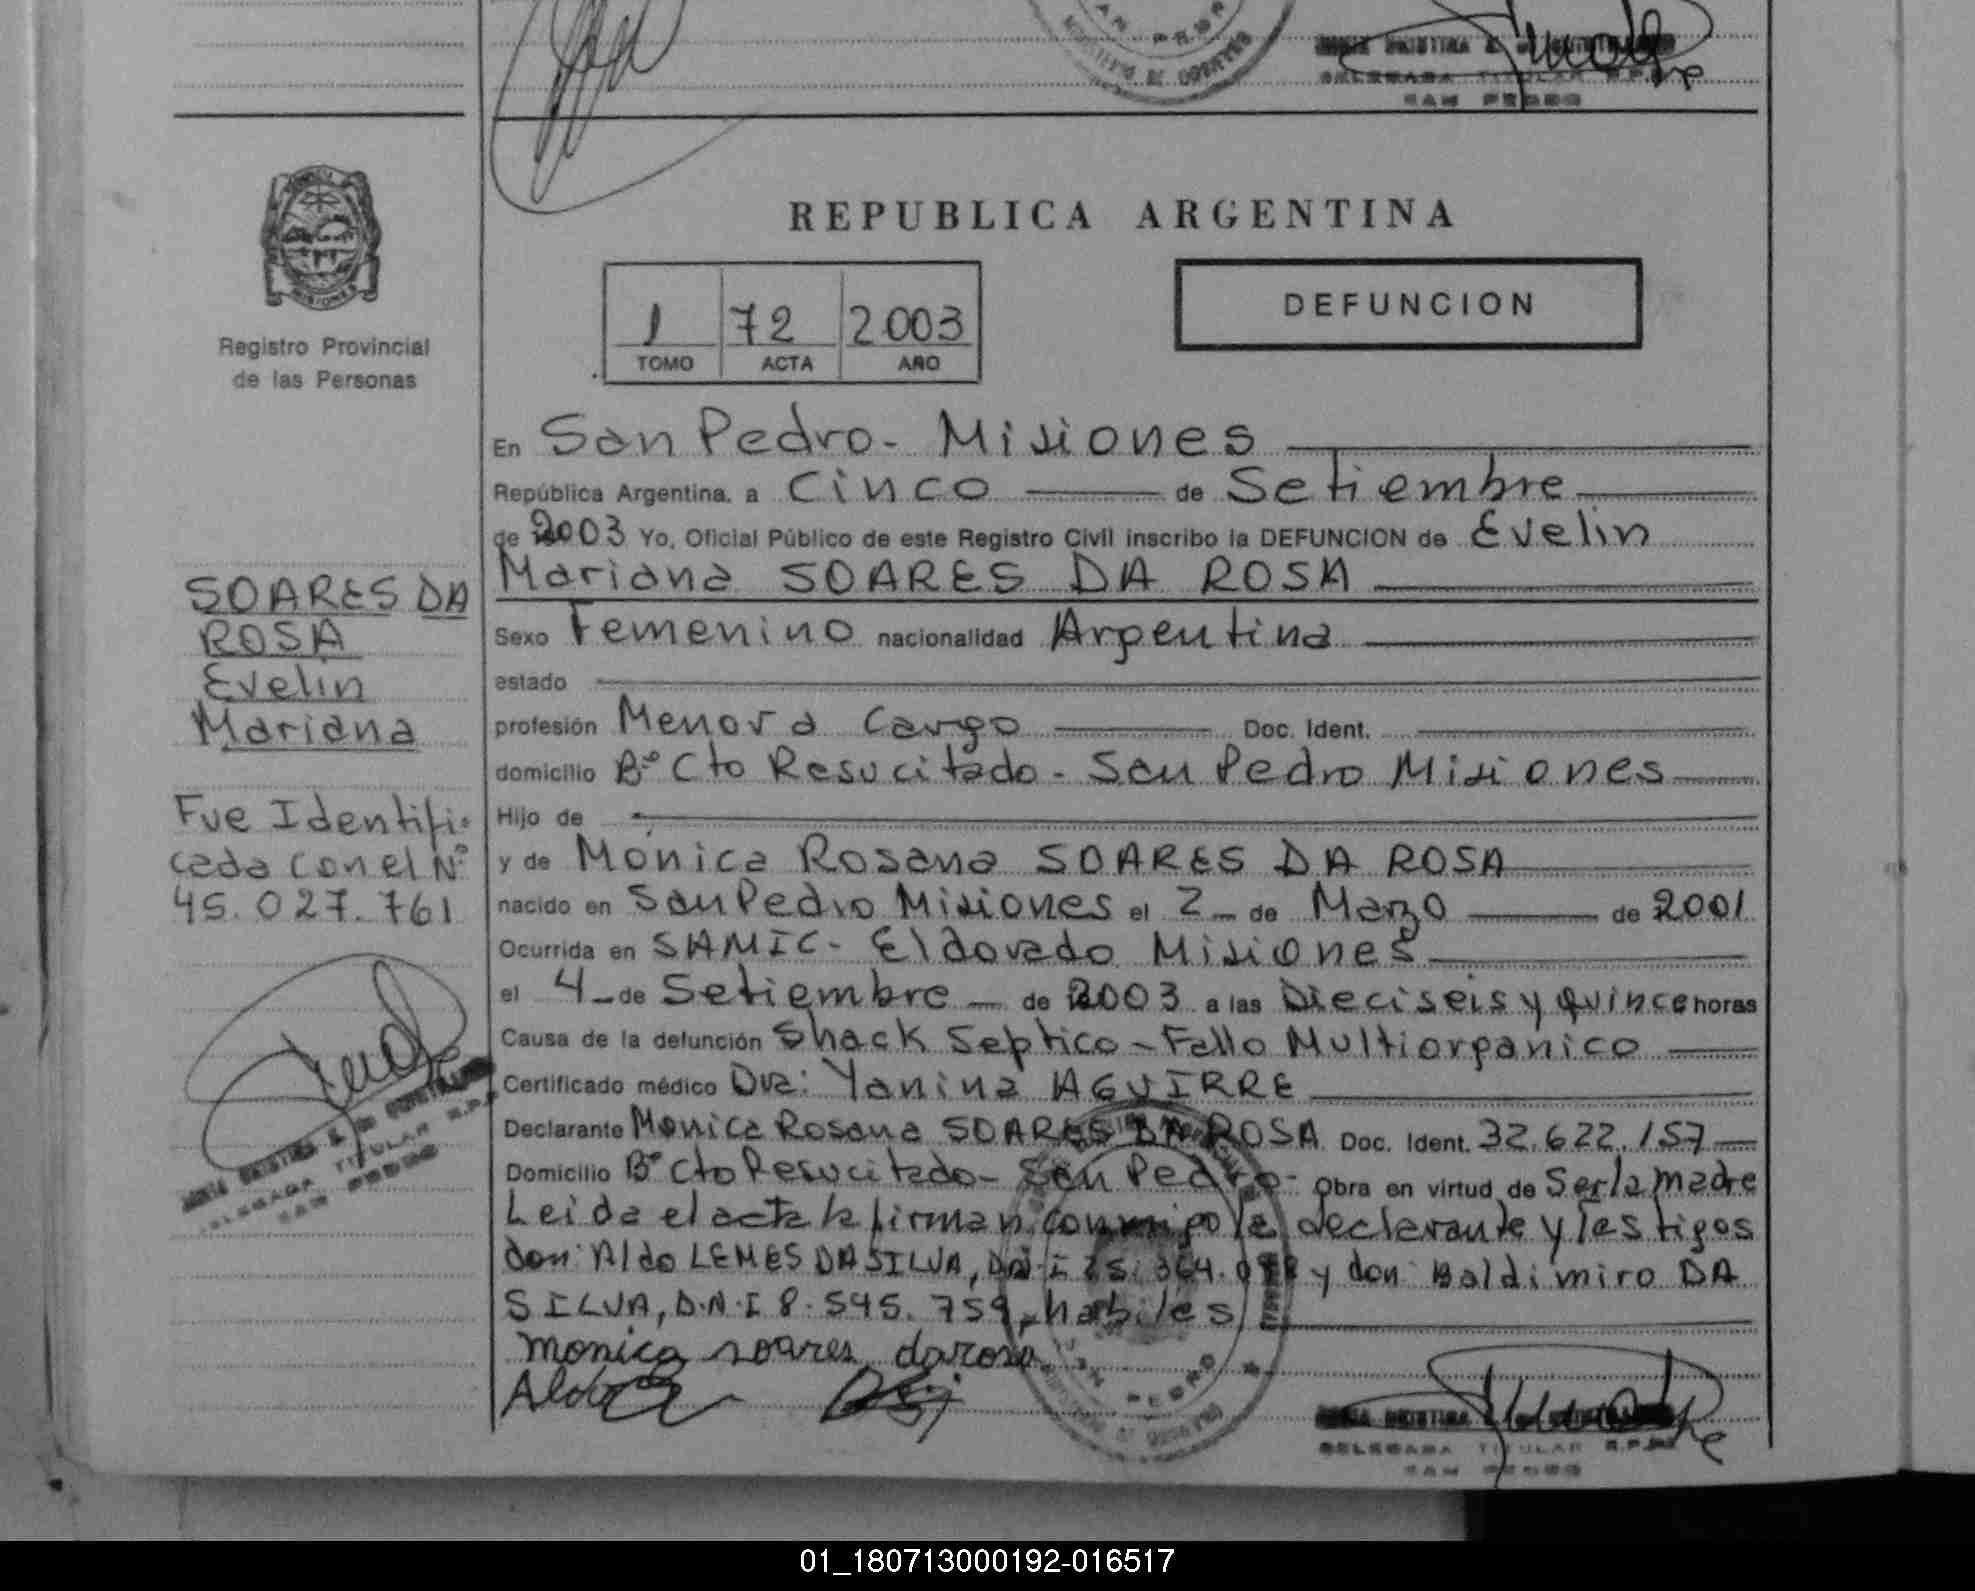 REPUBLICA ARGENTINA
MISIONES
Registro Provincial
de las Personas
1 72 2003
TOMO ACTA AÑO
DEFUNCION
SOARES DA
ROSA
Evelin
Mariana
Fue Identifi-
cada con el Nº
45.027.761
TITULAR
SAN PEDRO
En San Pedro - Misiones
República Argentina, a Cinco de Setiembre
de 2003 Yo, Oficial Público de este Registro Civil inscribo la DEFUNCION de Evelin
Mariana SOARES DA ROSA
Sexo Femenino nacionalidad Argentina
estado
profesión Menor a Cargo Doc. Ident.
domicilio Bº Cto Resucitado - San Pedro Misiones
Hijo de
y de Monica Rosana SOARES DA ROSA
nacido en San Pedro Misiones el 2 de Marzo de 2001
Ocurrida en SAMIC - Eldorado Misiones
el 4 de Setiembre de 2003 a las Dieciseis y quince horas
Causa de la defunción Shack Septico - Fallo Multiorganico
Certificado médico Dra: Yanina AGUIRRE
Declarante Monica Rosana SOARES DA ROSA Doc. Ident. 32.622.157
Domicilio Bº Cto Resucitado - San Pedro - Obra en virtud de Ser la madre
Leida el acta la firman conmigo la declarante y testigos
don: Aldo LEMES DA SILVA, D.N.I 25.364. y don Baldimiro DA
SILVA, D.N.I 8.545.759, habiles
monica soares darosa
Aldo
PEDRO
DELEGADA TITULAR R.P.
SAN PEDRO
01_180713000192-016517